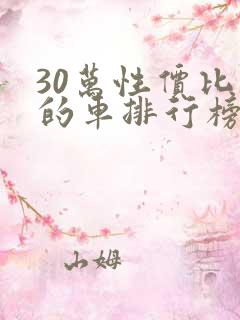 30萬性價比
的車排行榜
山姆